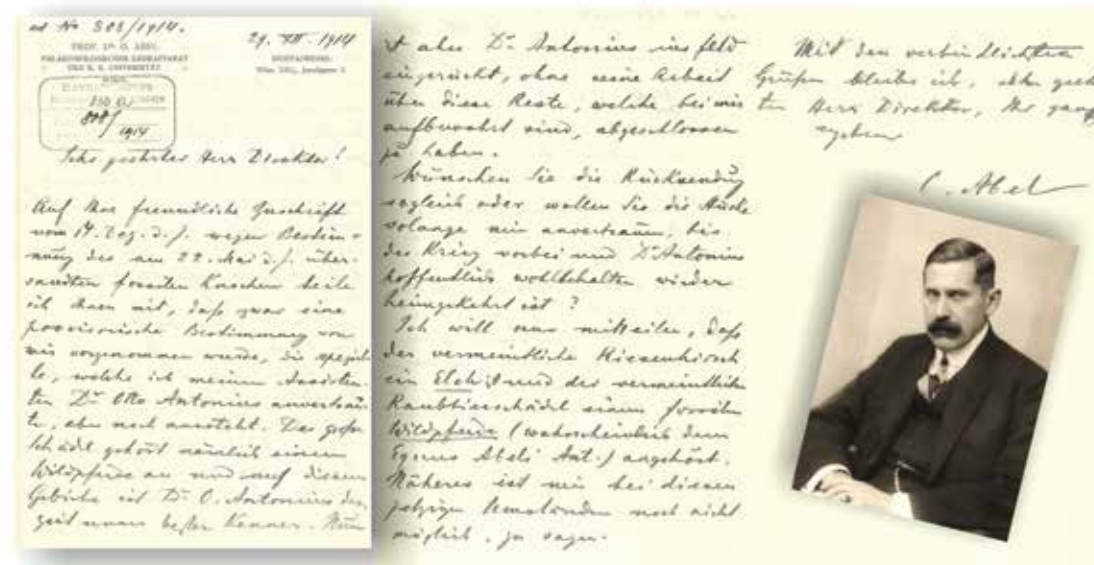 ad No 808/1914.
29. XII. 1914
PROF. Dr. O. ABEL
PALAEONTOLOGISCHER LEHRAPPARAT
DER K. K. UNIVERSITÄT
WIEN
808/1914
Sehr geehrter Herr Direktor!
Auf Ihre freundliche Zuschrift
vom 14. Dez. d. J. wegen Bestim-
mung des am 22. Mai d. J. über-
sandten fossilen Knochen teile
ich Ihnen mit, daß zwar eine
provisorische Bestimmung von
mir vorgenommen wurde, die speziel-
le, welche ich meinem Assisten-
ten Dr Otto Antonius anvertrau-
te, aber noch aussteht. Der große
Schädel gehört nämlich einem
Wildpferde an und auf diesem
Gebiete ist Dr. O. Antonius der-
zeit unser bester Kenner. Nun
ist aber Dr Antonius ins Feld
eingerückt, ohne seine Arbeit
über diese Reste, welche bei mir
aufbewahrt sind, abgeschlossen
zu haben.
Wünschen Sie die Rücksendung
sogleich oder wollen Sie die Stücke
solange mir anvertrauen, bis
der Krieg vorbei und Dr Antonius
hoffentlich wohlbehalten wieder
heimgekehrt ist?
Ich will nur mitteilen, daß
der vermeintliche Riesenhirsch
ein Elch ist und der vermeintliche
Raubtierschädel einem fossilen
Wildpferde (wahrscheinlich dem
Equus Abeli Ant.) angehört.
Näheres ist mir bei diesen
jetzigen Umständen noch nicht
möglich, zu sagen.
Mit den verbindlichsten
Grüßen bleibe ich, sehr geehr
ten Herr Direktor, Ihr ganz
ergebener
O. Abel